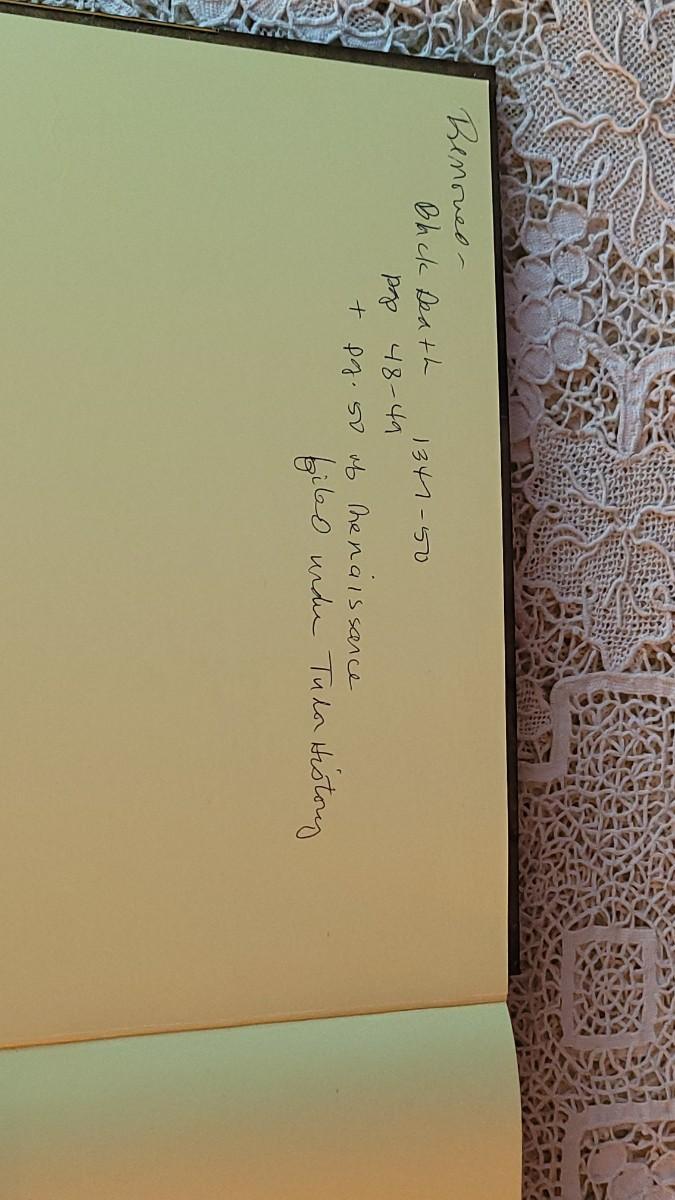 Removed -
Black Death 1347-50
pap 48-49
+ pg. 50 Renaissance
filed under Tudor History